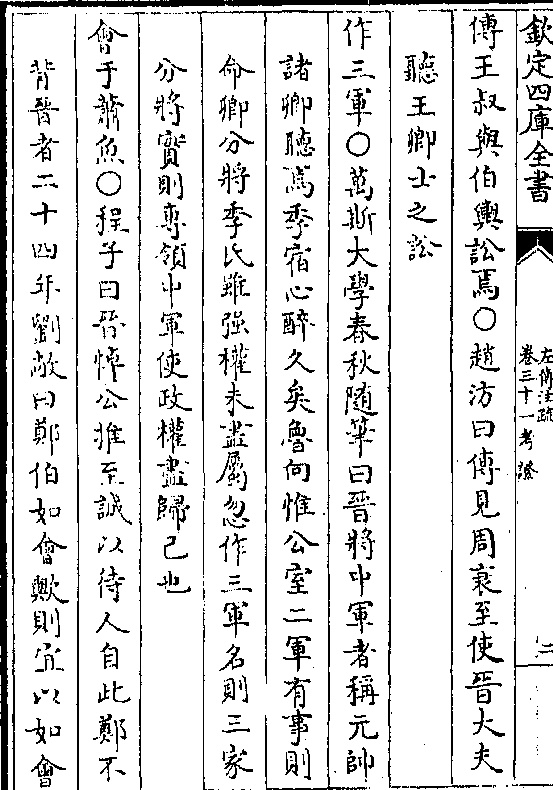 欽定四庫全書
左傳注疏
卷三十一考證
二
傳王叔與伯輿訟焉○趙汸曰傳見周衰至使晉大夫
聽王卿士之訟
作三軍○萬斯大學春秋随筆曰晉將中軍者稱元帥
諸卿聽焉季宿心醉久矣魯向惟公室二軍有事則
命卿分將季氏雖强權未盡屬忽作三軍名則三家
分將實則專領中軍使政權盡歸己也
會于蕭魚○程子曰晉悼公推至誠以待人自此鄭不
背晉者二十四年劉敞曰鄭伯如會歟則宜以如會